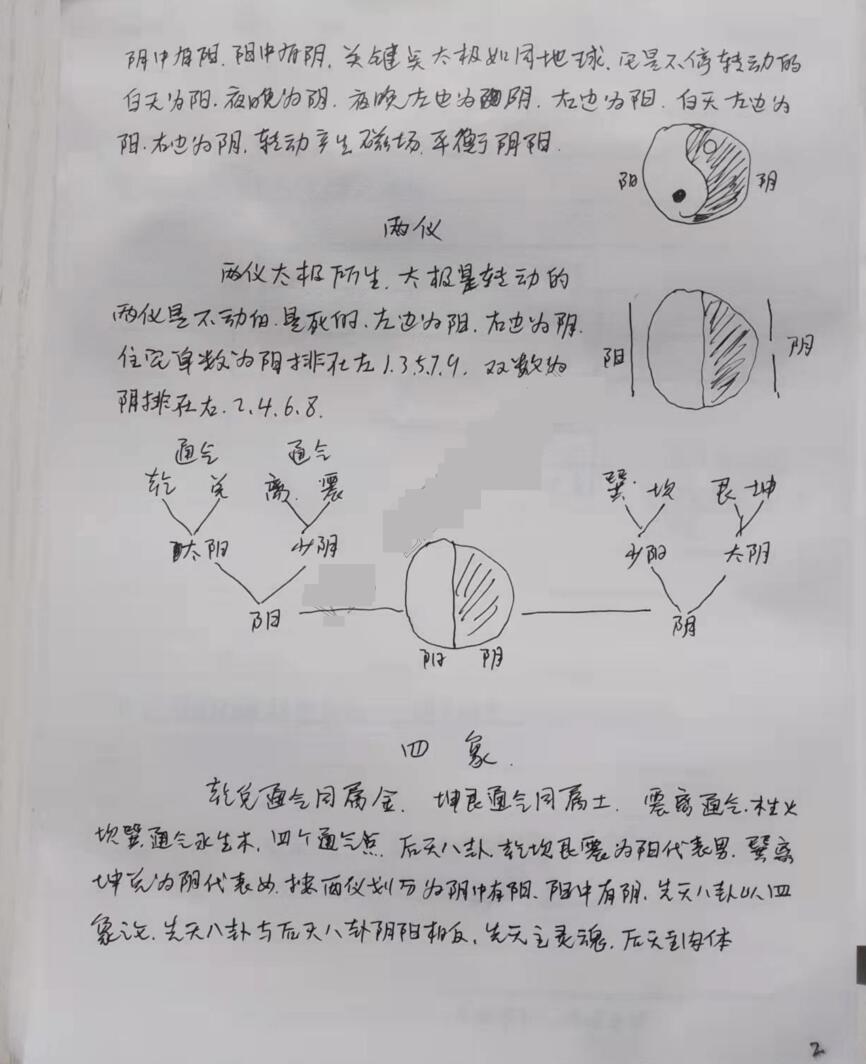 阴中有阳、阳中有阴,关键点太极如同地球,它是不停转动的
白天为阳、夜晚为阴,夜晚左边为阴,右边为阳,白天左边为
阳、右边为阴,转动产生磁场,平衡阴阳.
阳 阴
两仪
两仪太极所生,太极是转动的
两仪是不动的,是死的,左边为阳,右边为阴.
住宅单数为阳排在左1.3.5.7.9,双数为
阴排在右.2.4.6.8.
阳 阴
通气 通气
乾 兑 离.震 巽.坎 艮.坤
太阳 少阴 少阳 太阴
阳 阴
阳 阴
四 象.
乾兑通气同属金. 坤艮通气同属土. 震离通气.木生火
坎巽通气水生木,四个通气点. 后天八卦.乾坎艮震为阳代表男.巽离
坤兑为阴代表女.按两仪划分为阴中有阳、阳中有阴,先天八卦以四
象论.先天八卦与后天八卦阴阳相反,先天主灵魂.后天主肉体
2